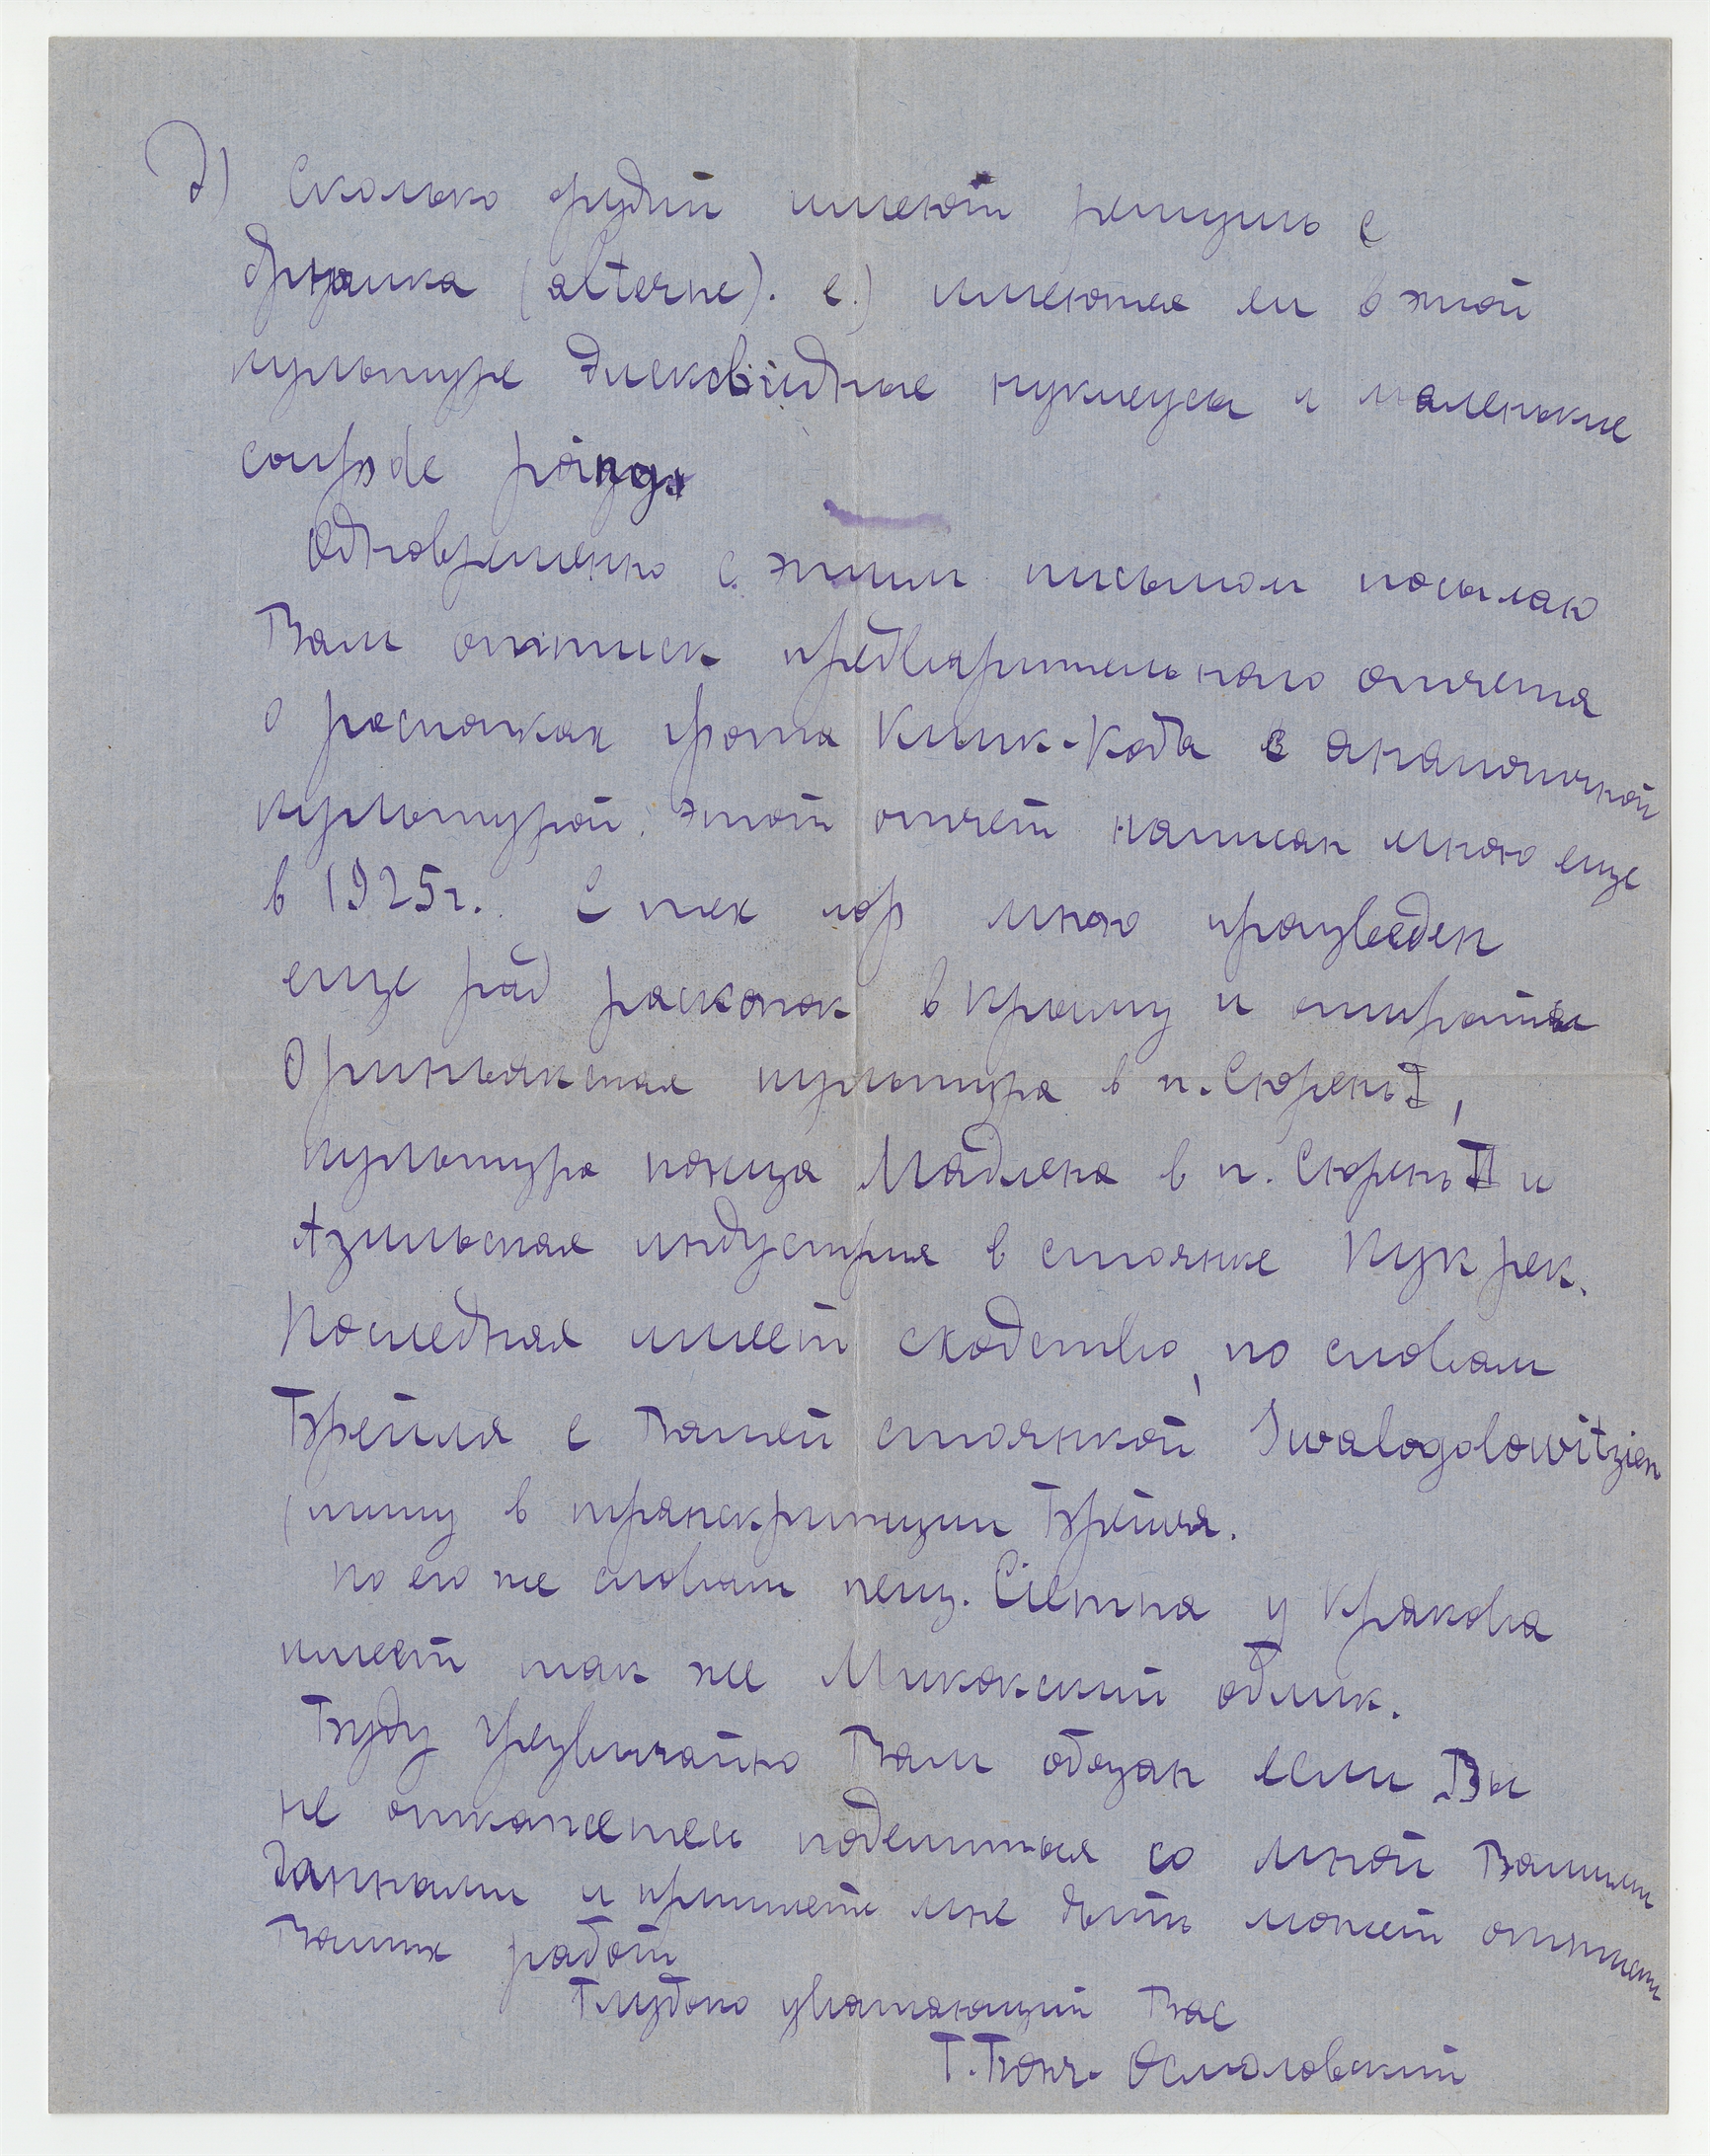 д) Сколько орудий имеют ретушь с
брюшка (alterne). е.) имеются ли в этой
культуре дисковидные нуклеусы и маленькие
coup de poing.
Одновременно с этим письмом посылаю
Вам оттиск предварительного отчета
о раскопках грота Киик-Коба с аналогичной
культурой. Этот отчет написан мною еще
в 1925г. С тех пор мною произведен
еще ряд раскопок в Крыму и открыты
Ориньякская культура в п. Сюрень I,
культура конца Мадлена в п. Сюрень II и
Азильская индустрия в стоянке Кукрек.
Последняя имеет сходство, по словам
Брейля с Вашей стоянкой Swalogolowitzien
(пишу в транскрипции Брейля.
По его же словам пещ. Ciemna у Кракова
имеет так же Микокский облик.
Буду чрезвычайно Вам обязан если Вы
не откажетесь поделиться со мной Вашими
данными и пришлете мне быть может оттиски
Ваших работ
Глубоко уважающий Вас
Г. Бонч-Осмоловский